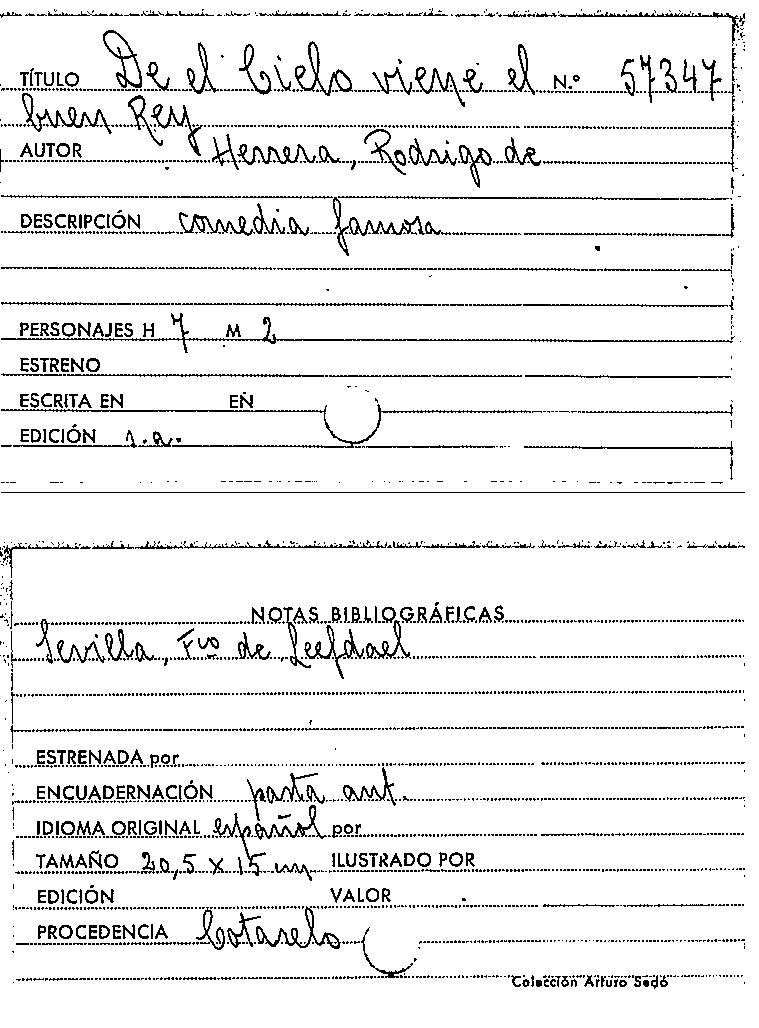 TÍTULO De el Cielo viene el N.º 57347
buen Rey
AUTOR Herrera, Rodrigo de
DESCRIPCIÓN comedia famosa
PERSONAJES H 7 M 2
ESTRENO
ESCRITA EN EN
EDICIÓN s.a.
NOTAS BIBLIOGRÁFICAS
Sevilla, Fco de Leefdael
ESTRENADA por
ENCUADERNACIÓN pasta ant.
IDIOMA ORIGINAL español por
TAMAÑO 20,5 x 15 cm ILUSTRADO POR
EDICIÓN VALOR
PROCEDENCIA Cotarelo
Colección Arturo Sedó